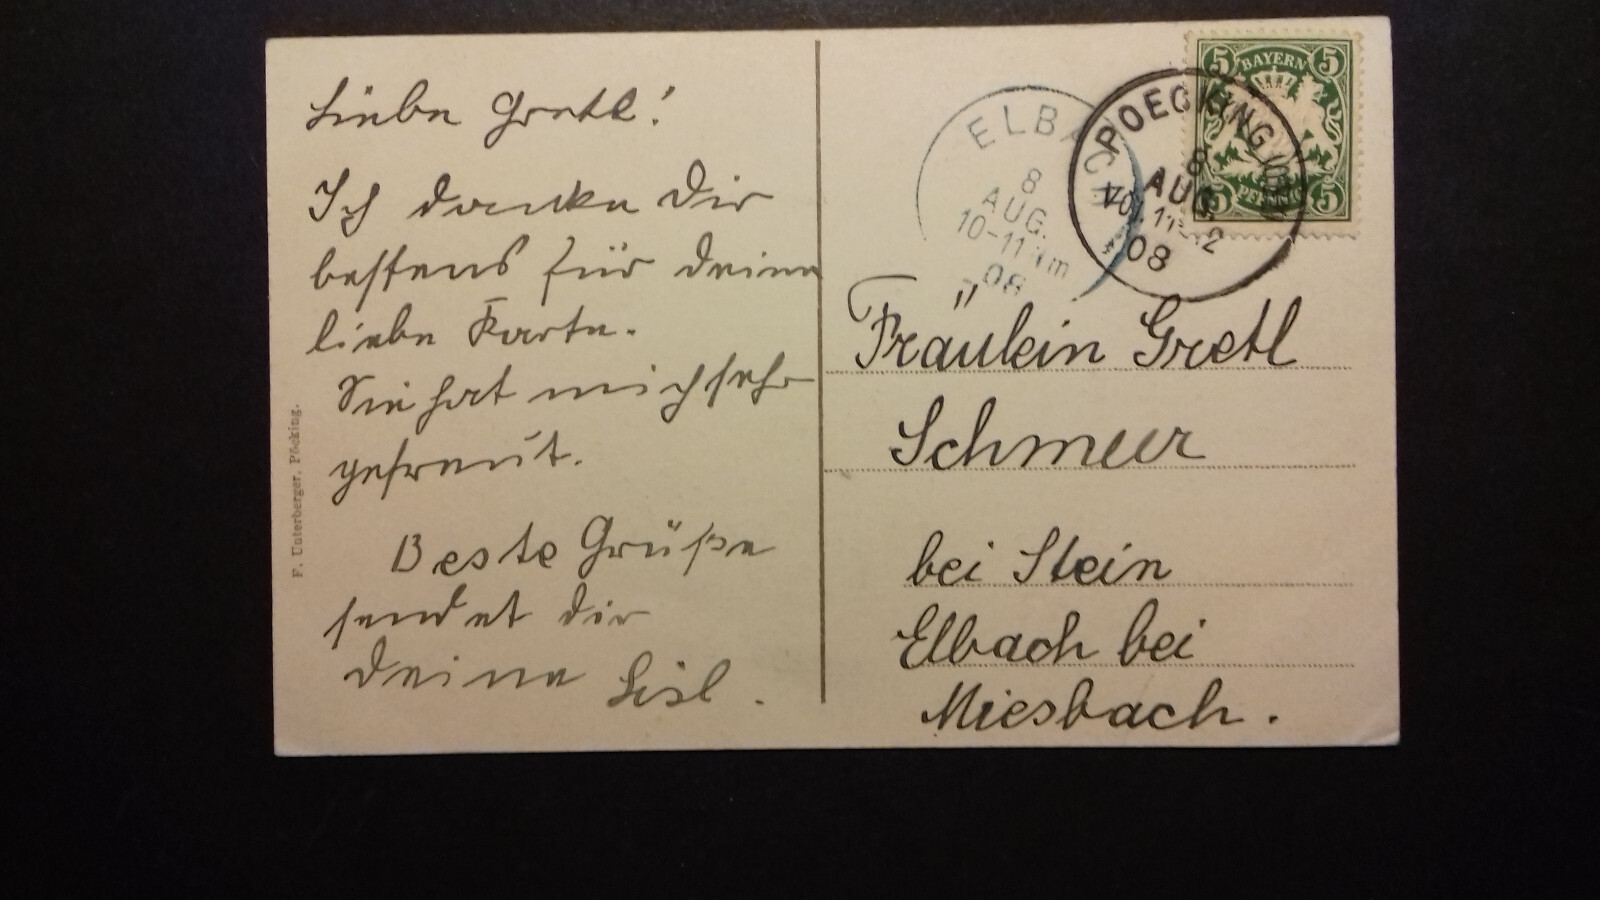 Liebe Gretl!
Ich danke Dir
bestens für deine
liebe Karte.
Sie hat mich sehr
gefreut.
Beste Grüße
sendet dir
deine Lisl.
F. Unterberger, Pöcking.
ELBACH
8
AUG.
10-11 Nm
08
POECKING
8
AUG.
VOR. 11-12
08
5 BAYERN 5
5 PFENNIG 5
Fräulein Gretl
Schmeer
bei Stein
Elbach bei
Miesbach.